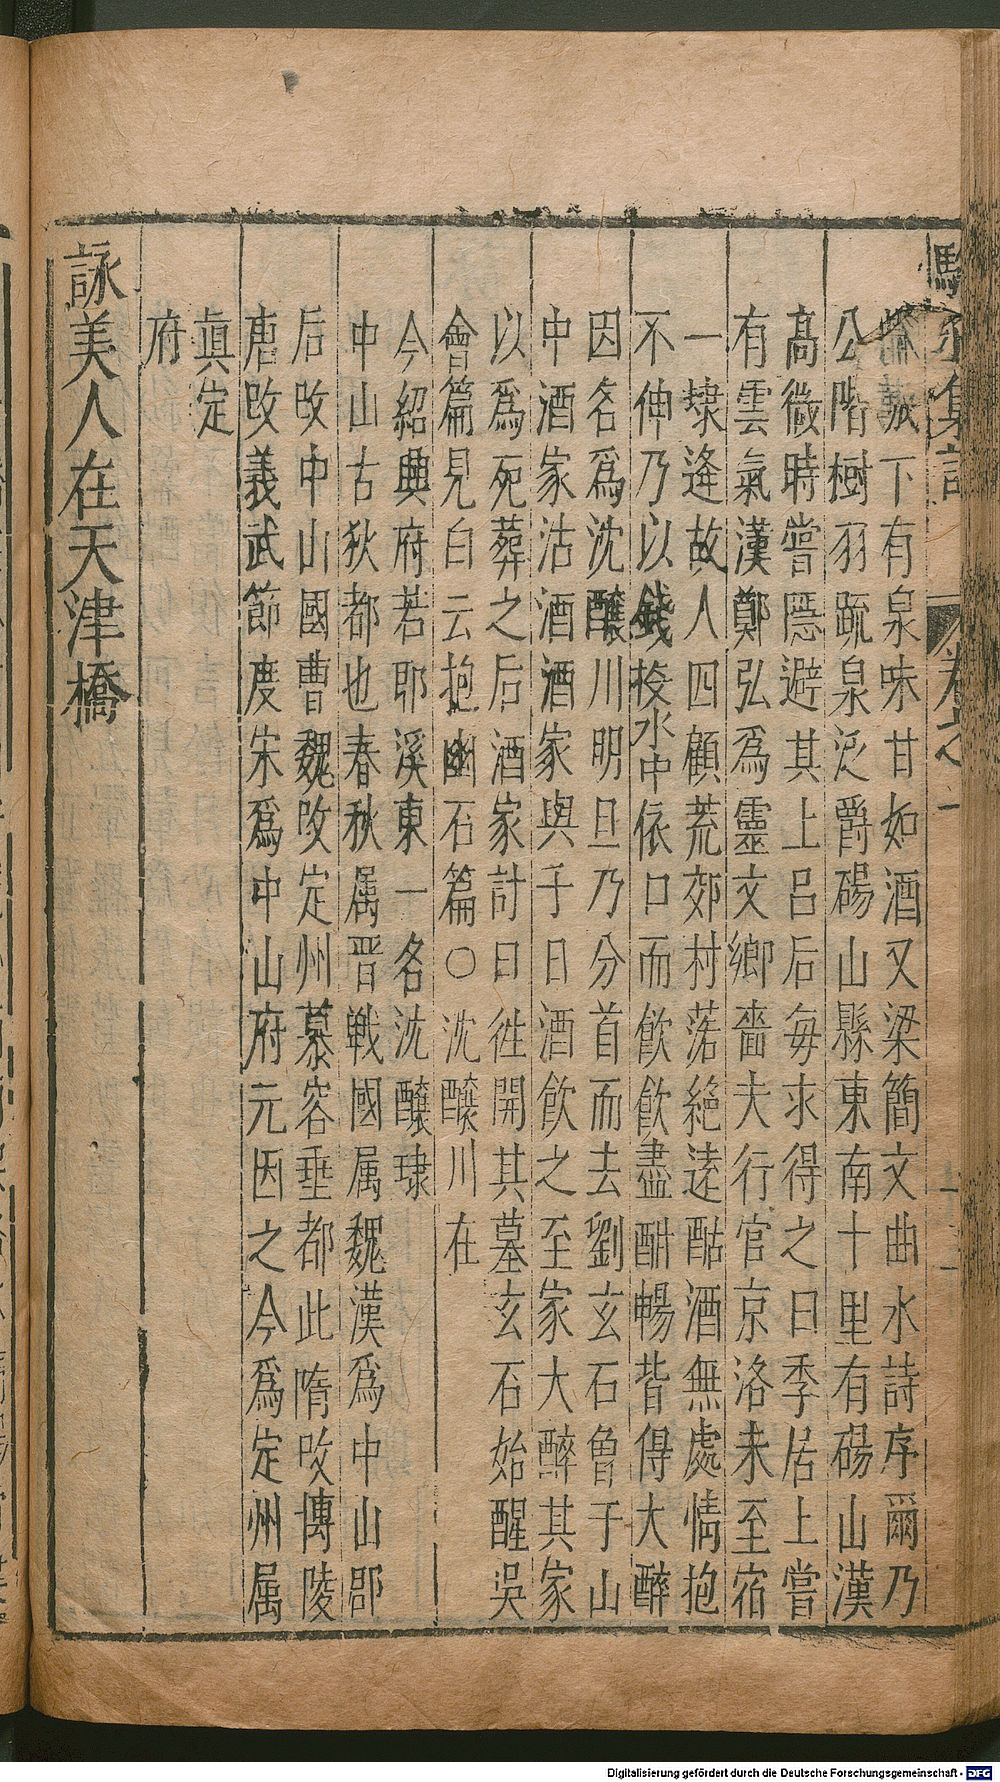 駱丞集註 卷之一
下有泉味甘如酒又梁簡文曲水詩序爾乃
公階樹羽疏泉泛爵碭山縣東南十里有碭山漢
高微時嘗隱避其上呂后每求得之曰季居上嘗
有雲氣漢鄭弘爲靈文鄉嗇夫行官京洛未至宿
一埭逢故人四顧荒郊村落絕遠酤酒無處情抱
不伸乃以錢投水中依口而飲飲盡酣暢皆得大醉
因名爲沈釀川明旦乃分首而去劉玄石魯于山
中酒家沽酒酒家與千日酒飲之至家大醉其家
以爲死葬之后酒家計日徃開其墓玄石始醒吳
會篇見白云抱幽石篇〇沈釀川在
今紹興府若耶溪東一名沈釀埭
中山古狄都也春秋属晋戰國属魏漢爲中山郡
后改中山國曹魏改定州慕容垂都此隋改博陵
唐改義武節度宋爲中山府元因之今爲定州属
眞定
府
詠美人在天津橋
Digitalisierung gefördert durch die Deutsche Forschungsgemeinschaft - DFG